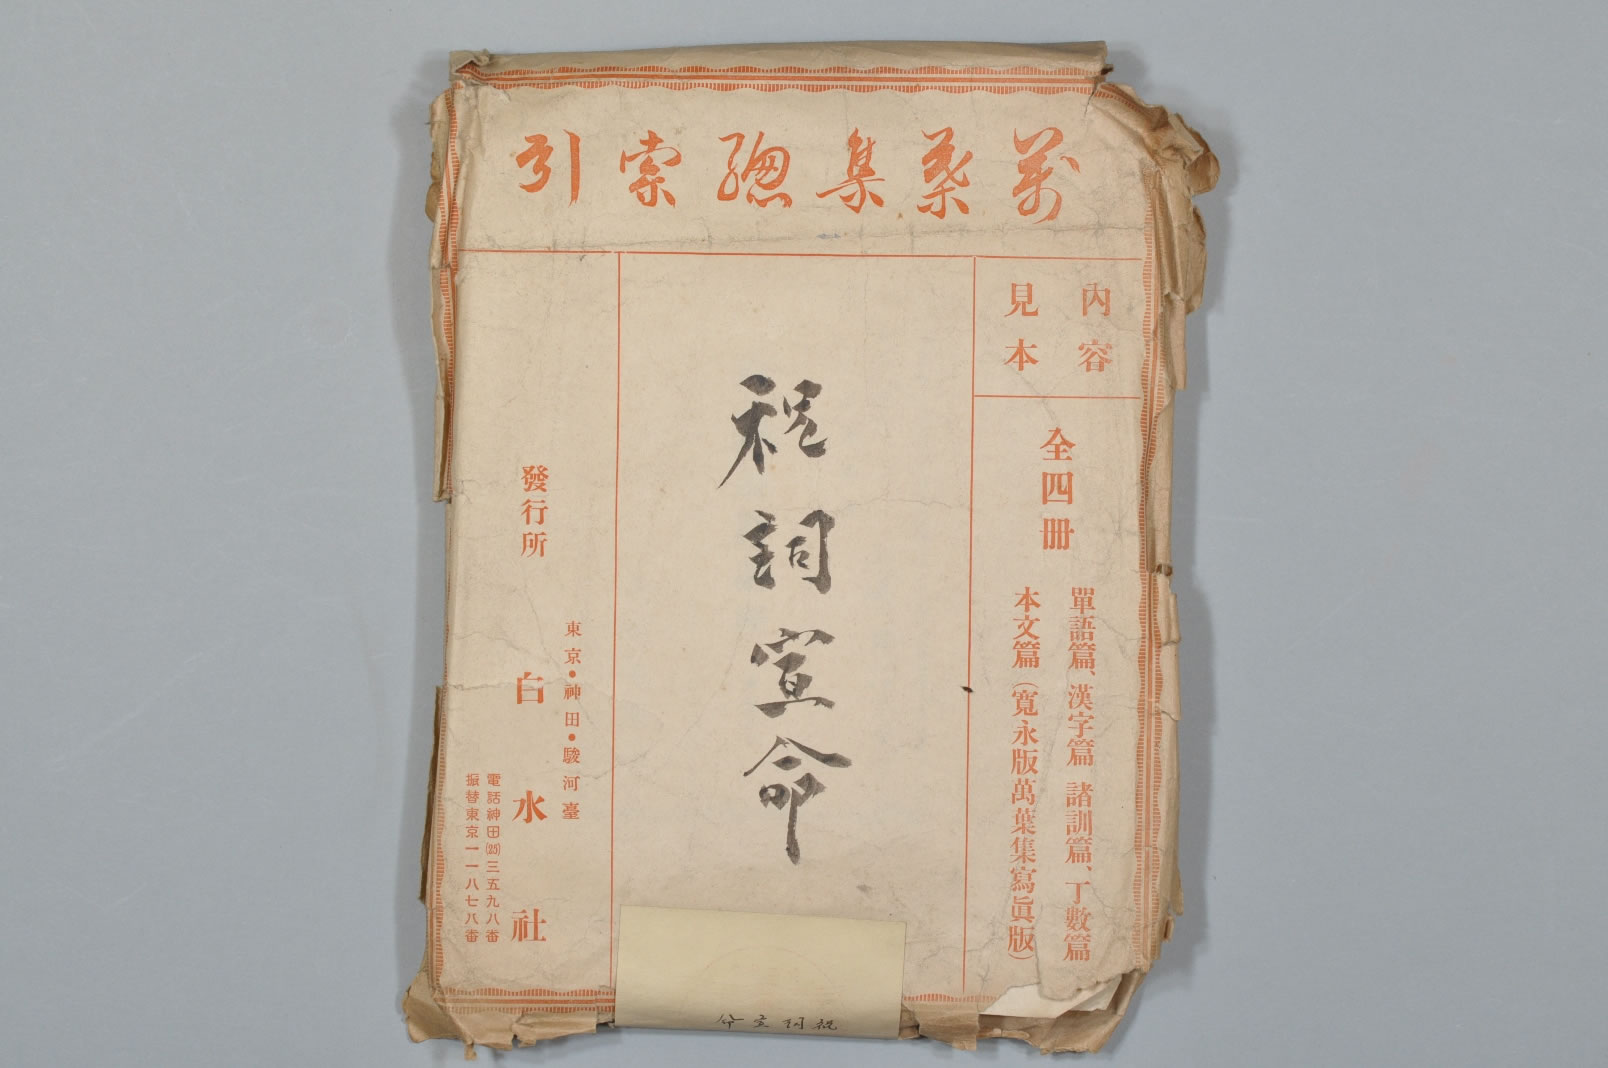 萬葉集總索引
內容
見本
全四冊
單語篇、漢字篇 諸訓篇、丁數篇
本文篇（寬永版萬葉集寫眞版）
祝詞宣命
東京・神田・駿河臺
發行所 白水社
電話神田(25)三五九八番
振替東京一一八七八番
祝詞宣命